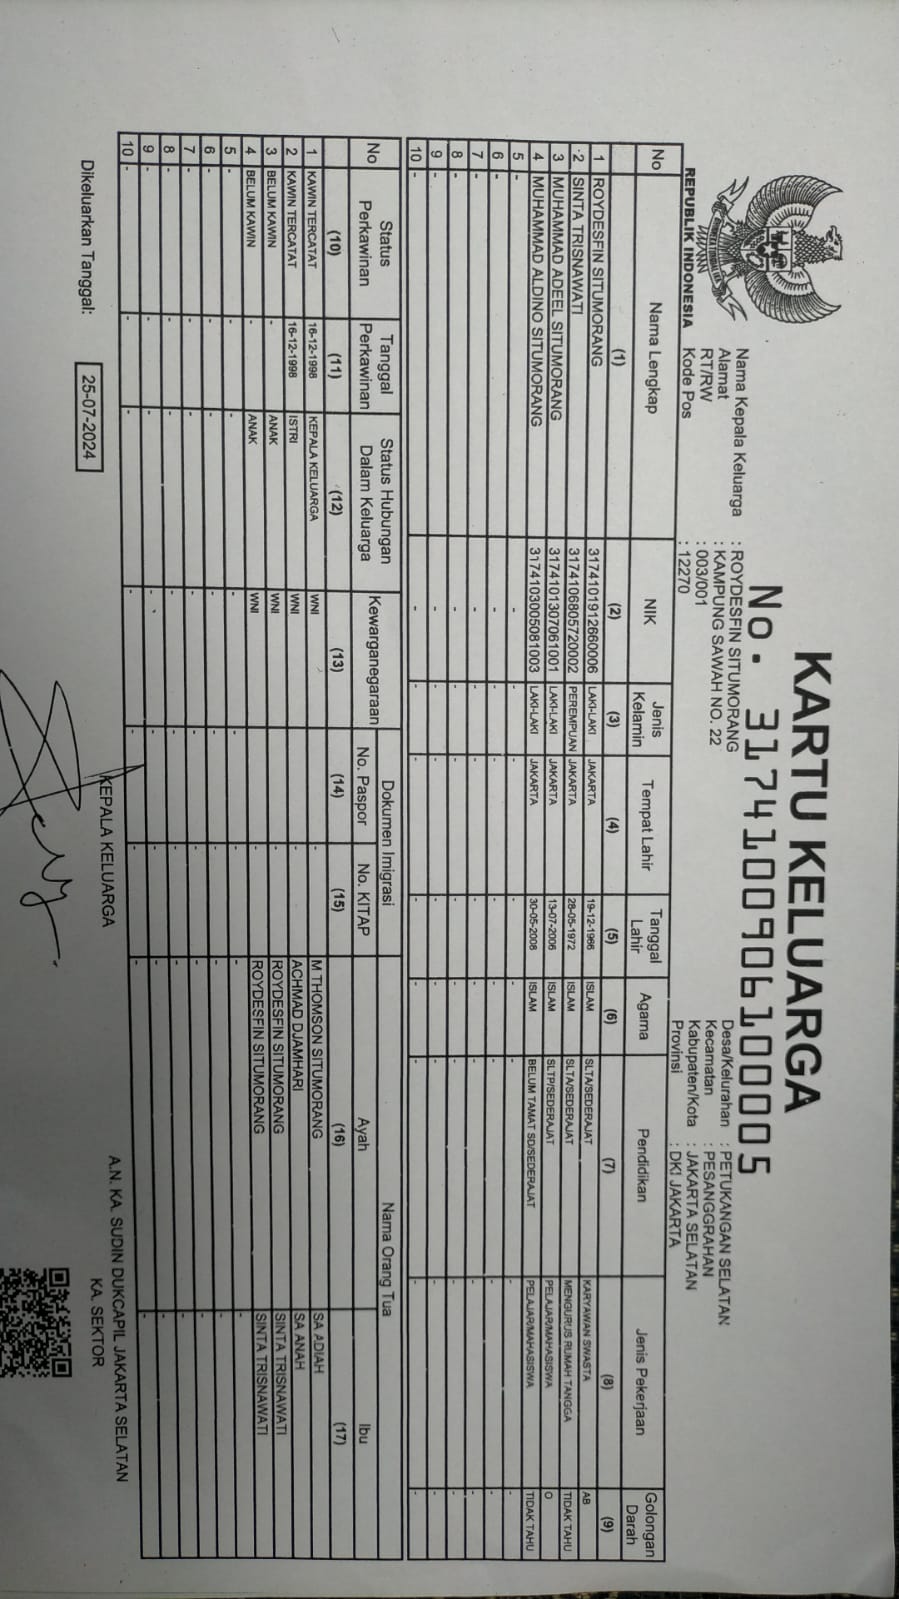 KARTU KELUARGA
No. 3174100906100005
REPUBLIK INDONESIA
Nama Kepala Keluarga : ROYDESFIN SITUMORANG
Alamat : KAMPUNG SAWAH NO. 22
RT/RW : 003/001
Kode Pos : 12270
Desa/Kelurahan : PETUKANGAN SELATAN
Kecamatan : PESANGGRAHAN
Kabupaten/Kota : JAKARTA SELATAN
Provinsi : DKI JAKARTA
No Nama Lengkap NIK Jenis Kelamin Tempat Lahir Tanggal Lahir Agama Pendidikan Jenis Pekerjaan Golongan Darah
(1) (2) (3) (4) (5) (6) (7) (8) (9)
1 ROYDESFIN SITUMORANG 3174101912660006 LAKI-LAKI JAKARTA 19-12-1966 ISLAM SLTA/SEDERAJAT KARYAWAN SWASTA AB
2 SINTA TRISNAWATI 3174106805720002 PEREMPUAN JAKARTA 28-05-1972 ISLAM SLTA/SEDERAJAT MENGURUS RUMAH TANGGA TIDAK TAHU
3 MUHAMMAD ADEEL SITUMORANG 3174101307061001 LAKI-LAKI JAKARTA 13-07-2006 ISLAM SLTP/SEDERAJAT PELAJAR/MAHASISWA O
4 MUHAMMAD ALDINO SITUMORANG 3174103005081003 LAKI-LAKI JAKARTA 30-05-2008 ISLAM BELUM TAMAT SD/SEDERAJAT PELAJAR/MAHASISWA TIDAK TAHU
5 - - - - - - - - -
6 - - - - - - - - -
7 - - - - - - - - -
8 - - - - - - - - -
9 - - - - - - - - -
10 - - - - - - - - -
No Status Perkawinan Tanggal Perkawinan Status Hubungan Dalam Keluarga Kewarganegaraan Dokumen Imigrasi Nama Orang Tua
No. Paspor No. KITAP Ayah Ibu
(10) (11) (12) (13) (14) (15) (16) (17)
1 KAWIN TERCATAT 16-12-1998 KEPALA KELUARGA WNI - M THOMSON SITUMORANG SA ADIAH
2 KAWIN TERCATAT 16-12-1998 ISTRI WNI - ACHMAD DJAMHARI SA ANAH
3 BELUM KAWIN - ANAK WNI - ROYDESFIN SITUMORANG SINTA TRISNAWATI
4 BELUM KAWIN - ANAK WNI - ROYDESFIN SITUMORANG SINTA TRISNAWATI
5 - - - - - - - -
6 - - - - - - - -
7 - - - - - - - -
8 - - - - - - - -
9 - - - - - - - -
10 - - - - - - - -
Dikeluarkan Tanggal: 25-07-2024
KEPALA KELUARGA
A.N. KA. SUDIN DUKCAPIL JAKARTA SELATAN
KA. SEKTOR